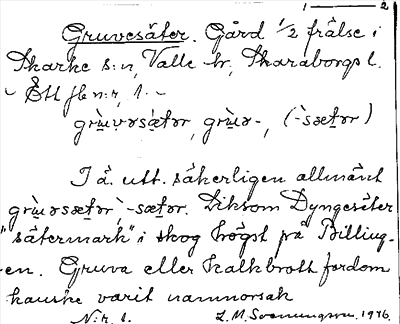 1 — 2
Gruvesäter. Gård 1/2 frälse i
Skarke s:n, Valle hr, Skaraborgs l.
- Ett jb n:r, 1. -
grùvəsætər, grùə-, (-sætər)
I ä. utt. säkerligen allmänt
grùəsætər, -sætər. Liksom Dyngesäter
"sätermark" i skog högst på Billing-
en. Gruva eller kalkbrott fordom
kanske varit namnorsak
N:r 1. L. M. Svenungsson. 1946.